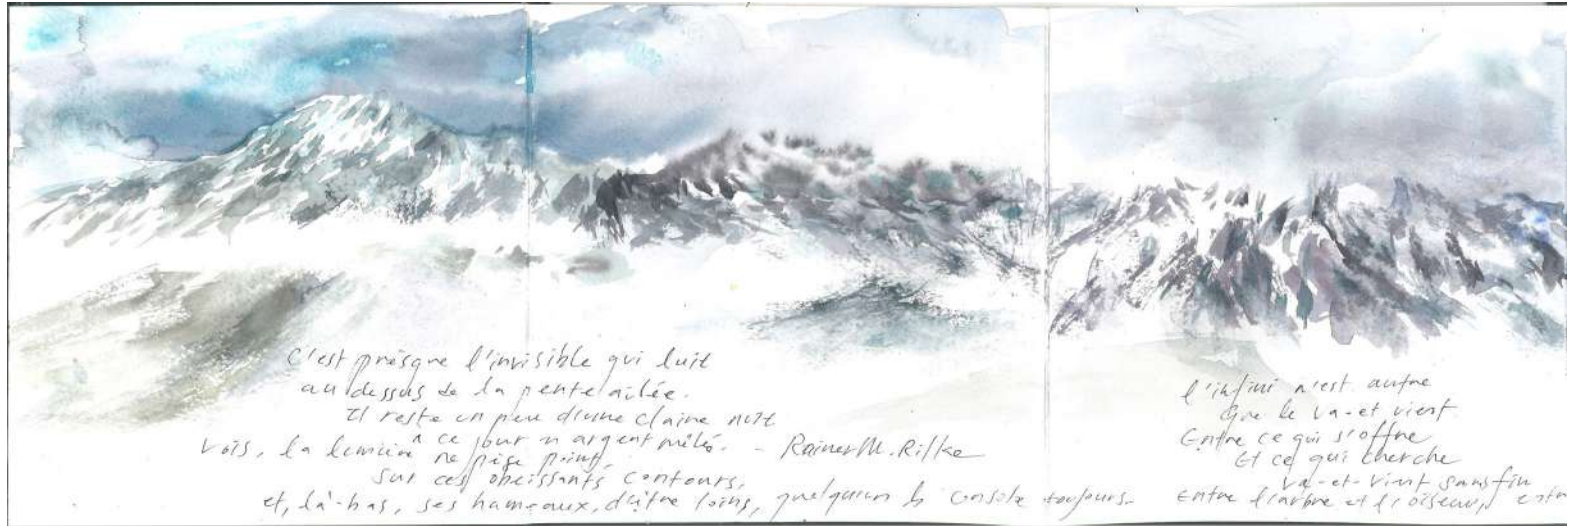 C'est presque l'invisible qui luit
au dessus de la pente ailée.
Il reste un peu d'une claire nuit
à ce jour en argent mêlé. - Rainer M. Rilke
Vois, la lumière ne pèse point
sur ces obéissants contours,
et, là-bas, ses hameaux, d'être loins, quelqu'un les console toujours.
l'infini n'est autre
Que le va-et vient
Entre ce qui s'offre
Et ce qui cherche
Va-et-vient sans fin
Entre l'arbre et l'oiseau,